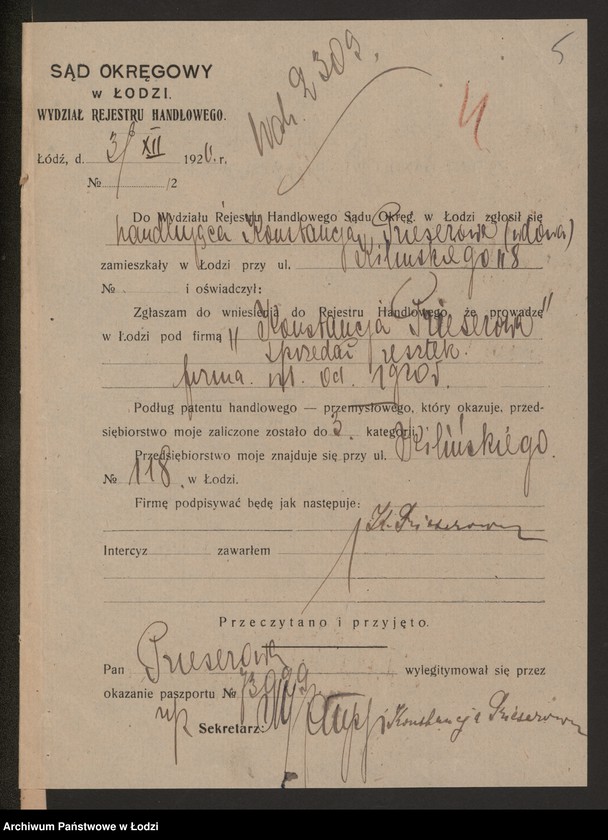 5
SĄD OKRĘGOWY
w ŁODZI.
WYDZIAŁ REJESTRU HANDLOWEGO.
Łódź, d. 3/XII 1920. r.
№ /2
Do Wydziału Rejestru Handlowego Sądu Okręg. w Łodzi zgłosił się
handlująca Konstancja Prieserowa (wdowa)
zamieszkały w Łodzi przy ul. Kilińskiego 118
№ i oświadczył:
Zgłaszam do wniesienia do Rejestru Handlowego, że prowadzę
w Łodzi pod firmą „Konstancja Prieserowa”
sprzedaż resztek.
firma ist. od. 1920r.
Podług patentu handlowego — przemysłowego, który okazuje, przed-
siębiorstwo moje zaliczone zostało do 3. kategorji.
Przedsiębiorstwo moje znajduje się przy ul. Kilińskiego.
№ 118. w Łodzi.
Firmę podpisywać będę jak następuje:
K. Prieserowa
Intercyz zawarłem
Przeczytano i przyjęto.
Pan Prieserowa wylegitymował się przez
okazanie paszportu №
Sekretarz: Konstancja Prieserowa
Archiwum Państwowe w Łodzi